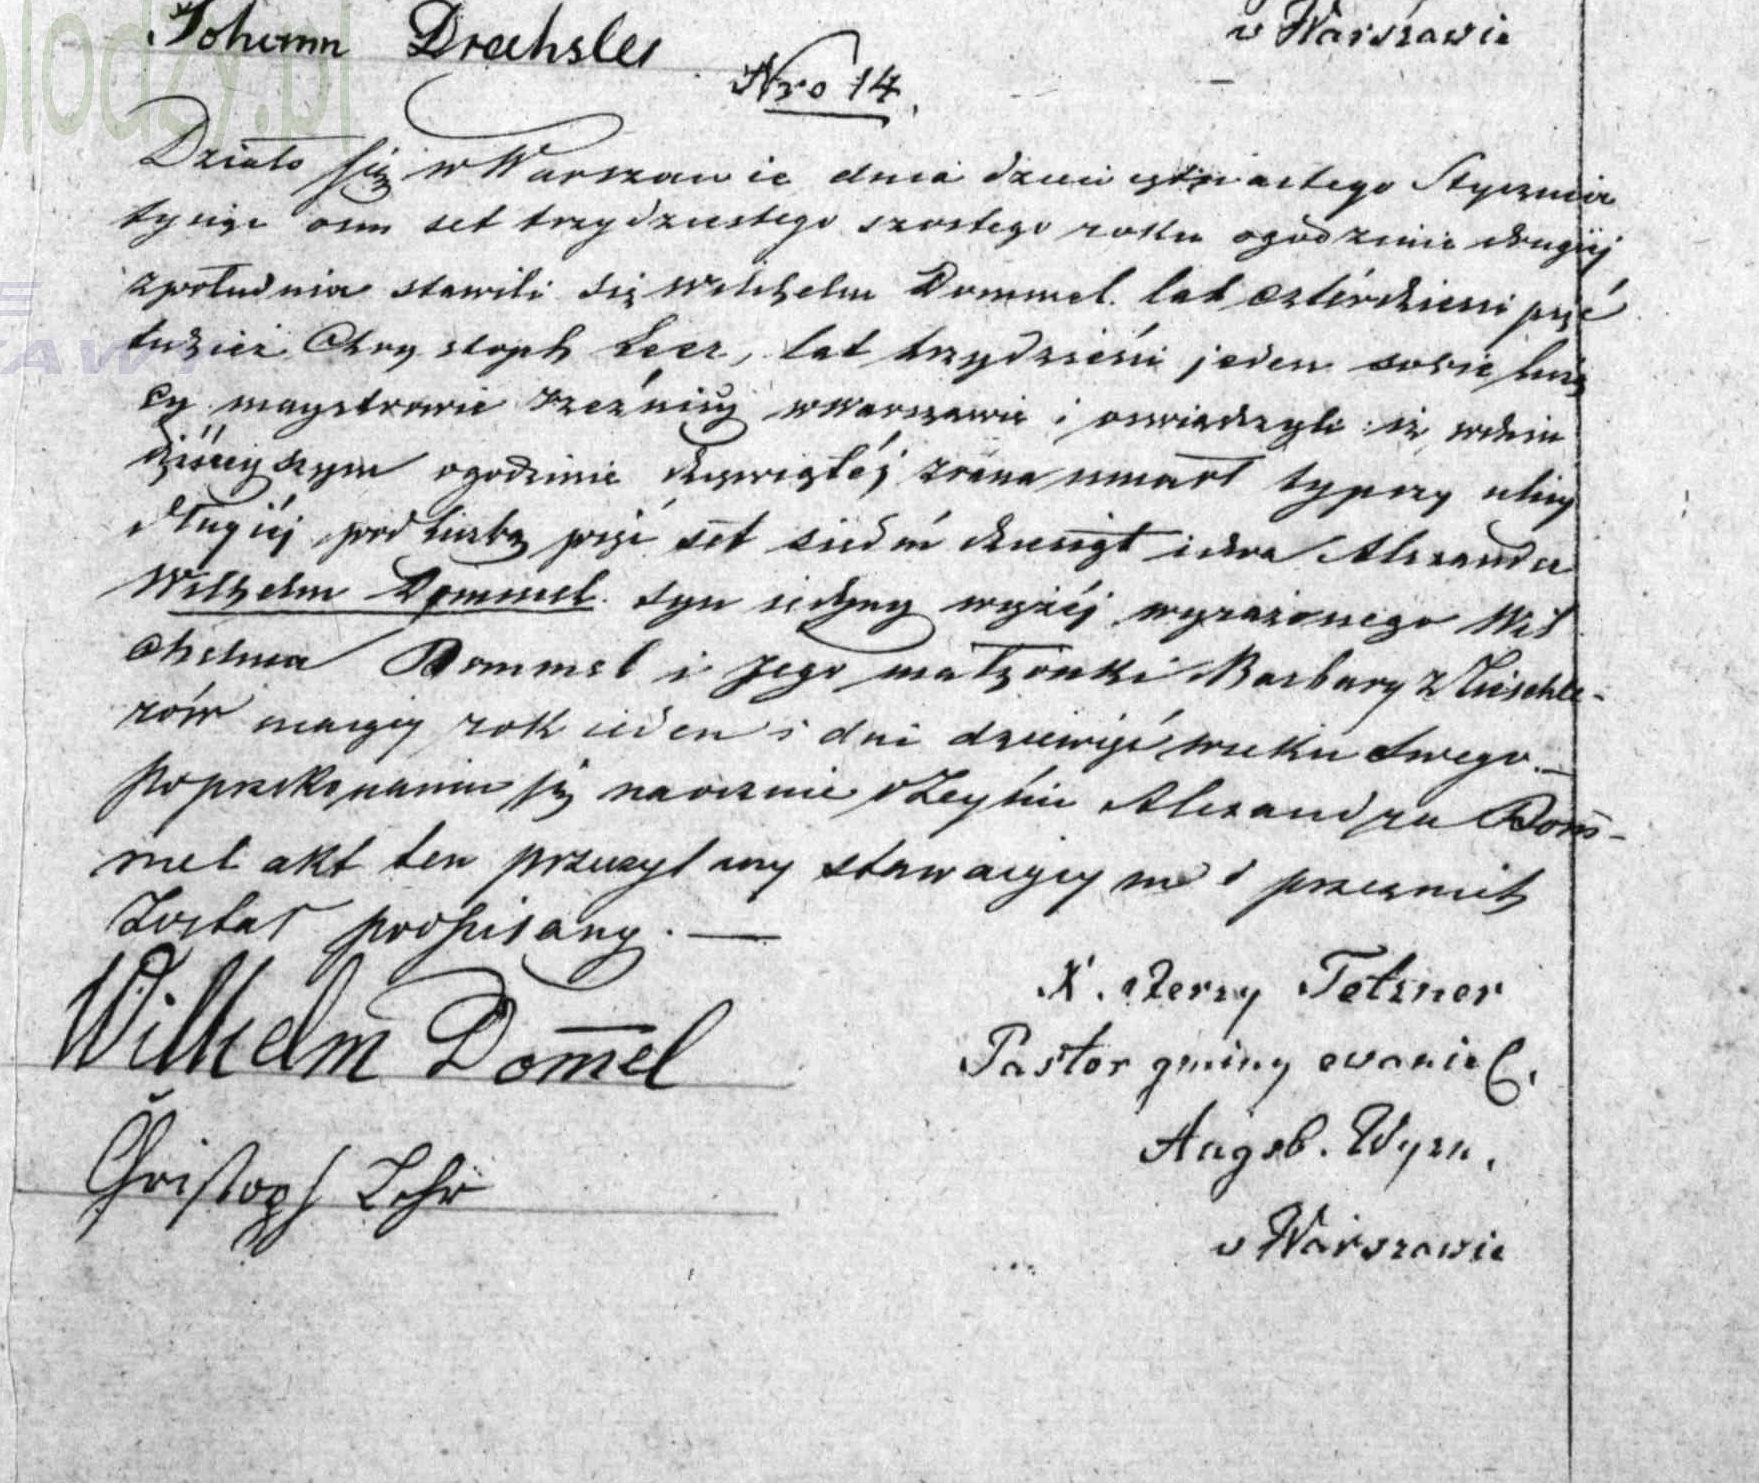 Johann Drechsler
w Warszawie
Nro 14.
Działo się w Warszawie dnia dziewiętnastego Stycznia
tysiąc osm set trzydziestego szostego roku ogodzinie drugiej
zpołudnia stawili się Wilhelm Dommel. lat czterdzieści pięć
tudzież Chrystoph Leer, lat trzydzieści jeden sobie liczą
cy maystrowie rzeźniccy w Warszawie i oswiadczyli iż w dniu
dzisieyszym ogodzinie dziewiątéj zrana umarł tu przy ulicy
długiéj pod liczbą pięć set siedm dziesiąt i dwa Alexander
Wilhelm Dommel syn jedyny wyżéj wyrażonego Wil
chelma Dommel i Jego małżonki Barbary z Tischle-
rów maiący rok jeden i dni dziewięć wieku swego. —
Po przekonaniu się naocznie o Zeyściu Alexandra Dom-
mel akt ten przeczytany stawaiącym i przez nich
Został podpisany. —
Wilhelm Dom̅el
Christoph Lehr
X. Jerzy Tetzner
Pastor gminy ewaniel.
Augsb. Wyzn.
w Warszawie